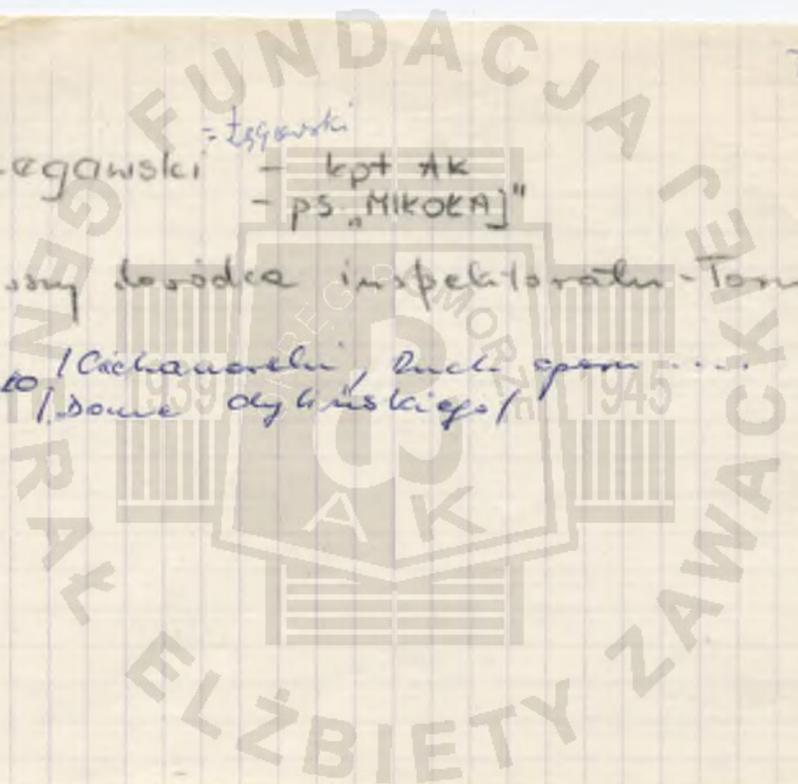 = Łęgowski
egawski - kpt AK
- ps „MIKOŁAJ"
dowódca inspektoratu - Toru
/ Ciechanowski, Ruch oporu ....
/ Dome dylińskiego /
FUNDACJA
GENERAŁ ELŻBIETY ZAWACKIEJ
ARMIA KREG POMORZE
1939 1945
AK